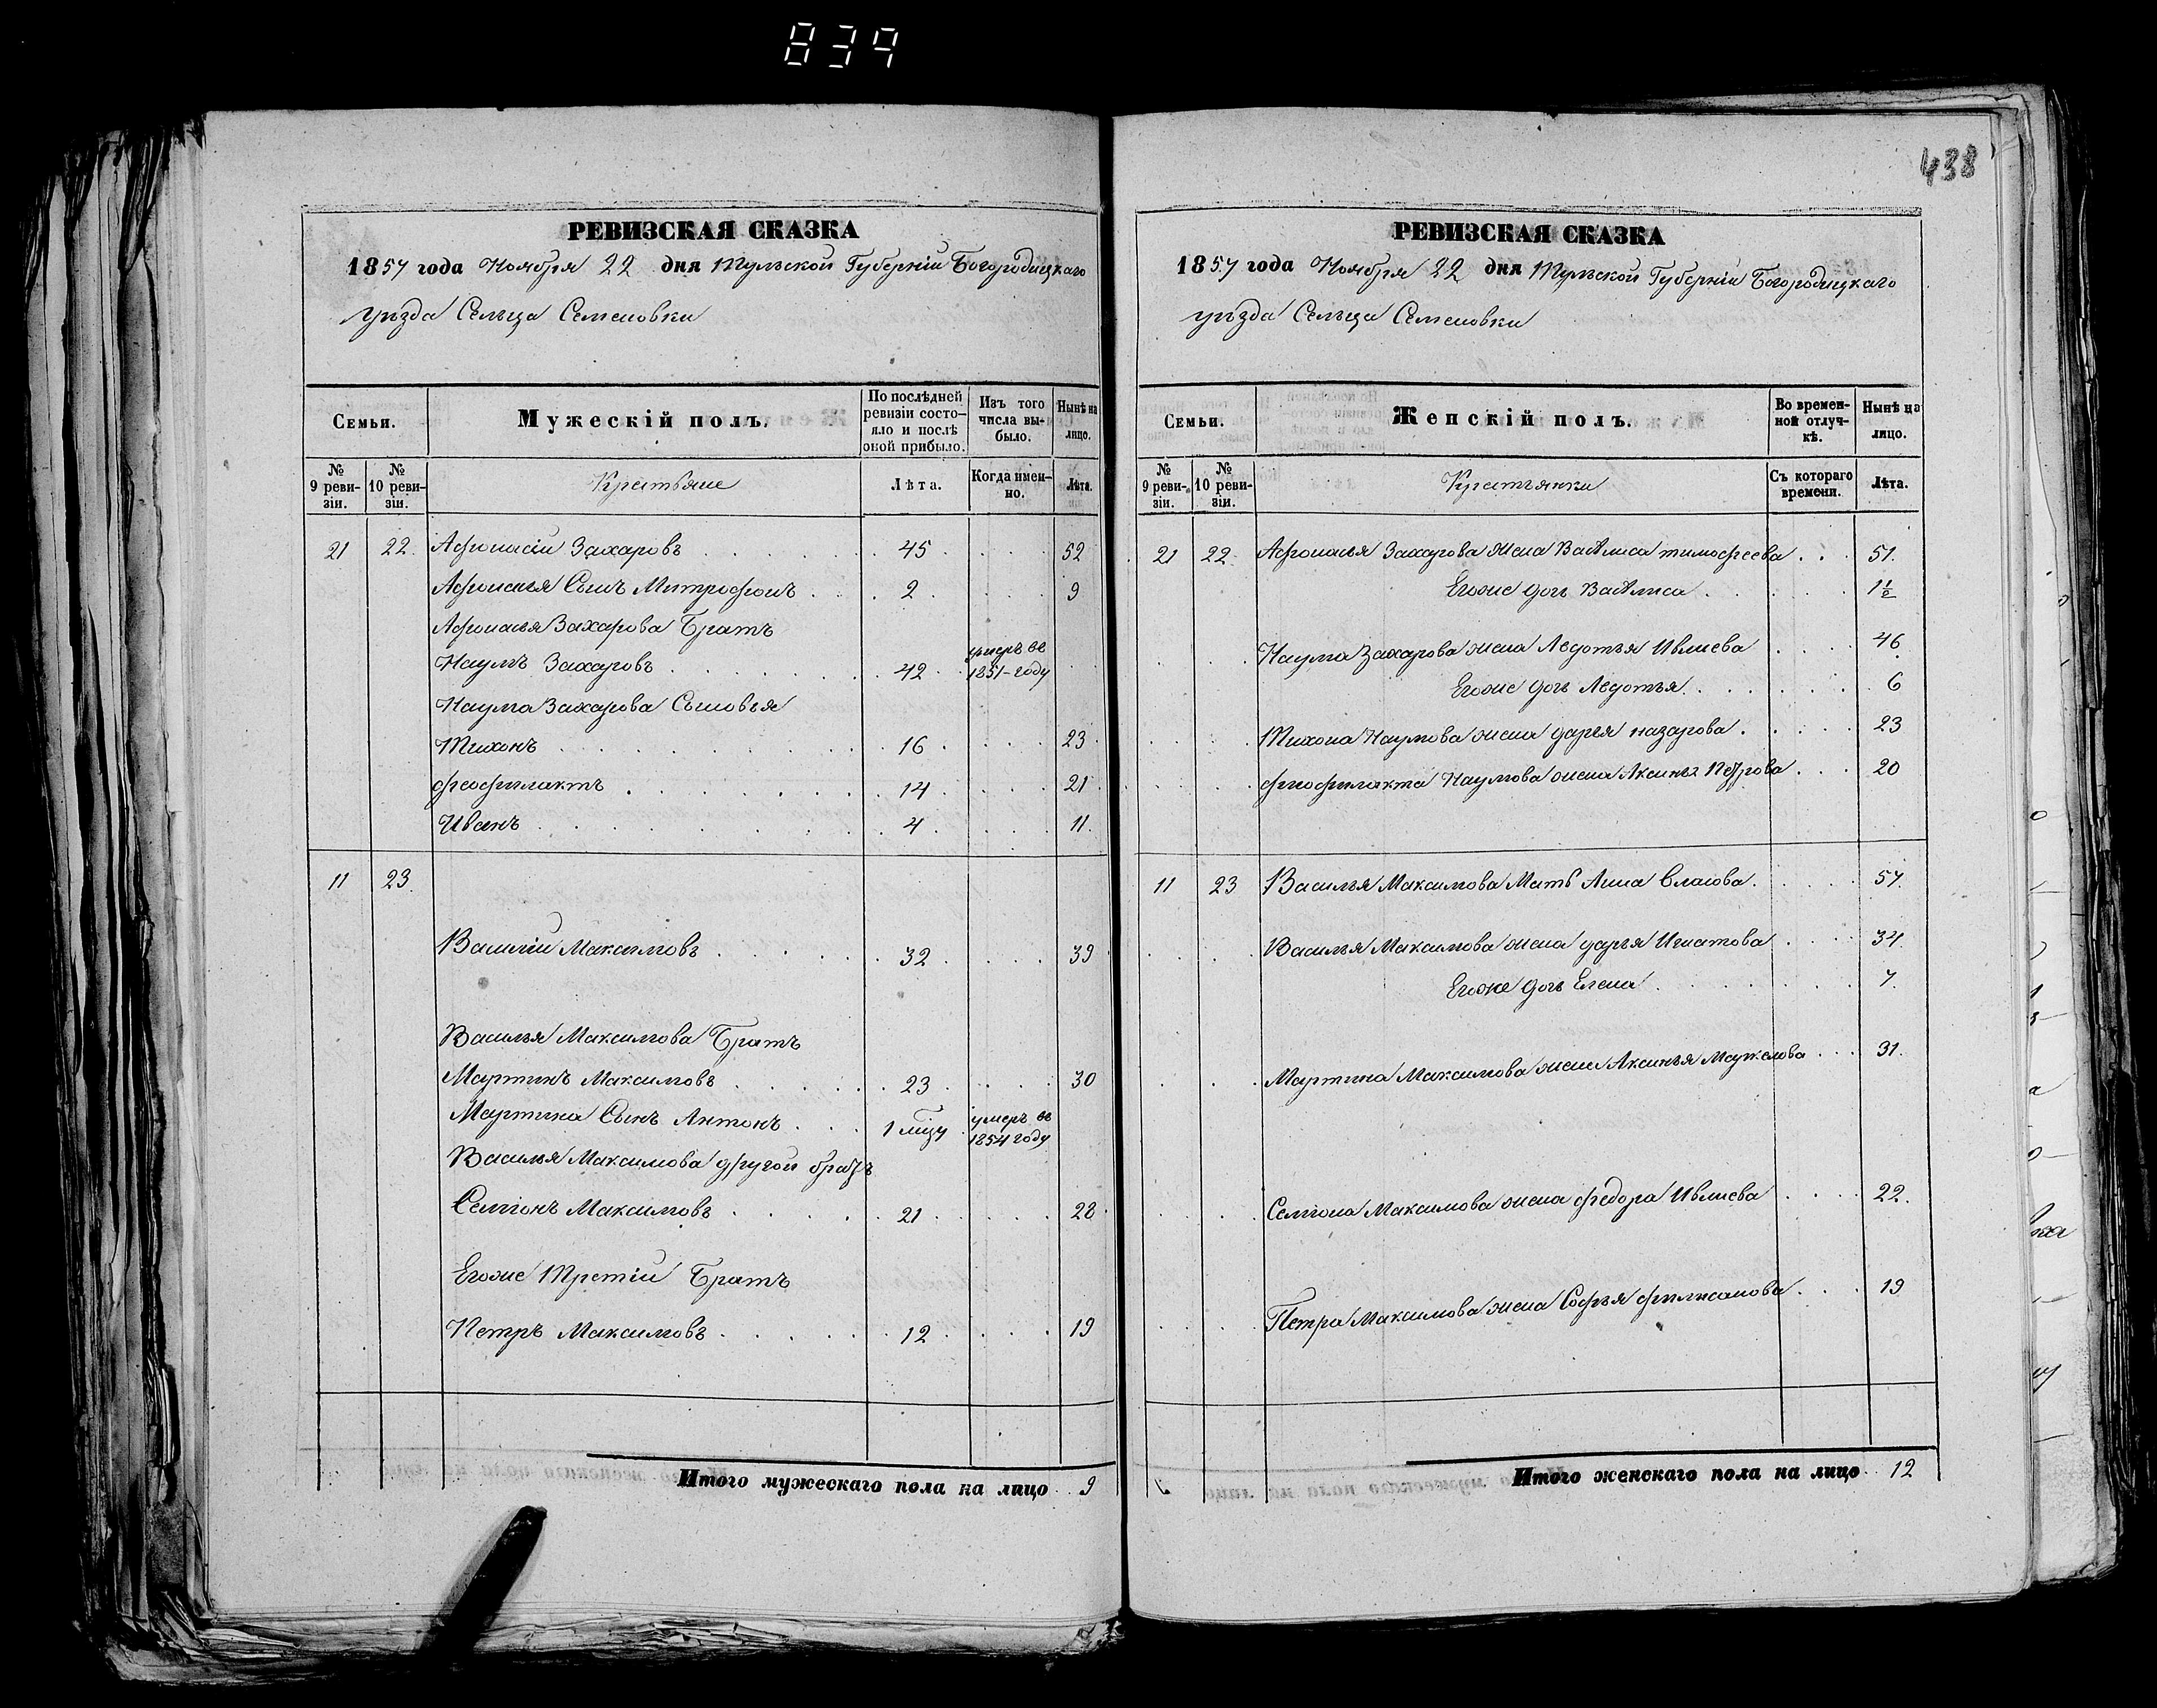 839
438
РЕВИЗСКАЯ СКАЗКА
1857 года Ноября 22 дня Тульской Губерніи Богородицкаго
уѣзда Сельца Семеновки
Семьи.
Мужескій полъ.
По послѣдней ревизіи состояло и послѣ оной прибыло.
Изъ того числа выбыло.
Нынѣ на лицо.
№ 9 ревизіи.
№ 10 ревизіи.
Крестьяне
Лѣта.
Когда именно.
Лѣта.
21 22. Афонасій Захаровъ 45 52
Афонасья Сынъ Митрофонъ 2 9
Афонасья Захарова Братъ
Наумъ Захаровъ 42 умеръ въ 1851-году
Наума Захарова Сыновья
Тихонъ 16 23
феофилактъ 14 21
Иванъ 4 11.
11 23.
Василій Максимовъ 32 39
Василья Максимова Братъ
Мартинъ Максимовъ 23 30
Мартина Сынъ Антонъ 1 умеръ въ 1854 году
Василья Максимова другой братъ
Семіонъ Максимовъ 21 28
Егоже Третій Братъ
Петръ Максимовъ 12 19
Итого мужескаго пола на лицо 9
РЕВИЗСКАЯ СКАЗКА
1857 года Ноября 22 дня Тульской Губерніи Богородицкаго
уѣзда Сельца Семеновки
Семьи.
Женскій полъ.
Во временной отлучкѣ.
Нынѣ на лицо.
№ 9 ревизіи.
№ 10 ревизіи.
Крестьянки
Съ котораго времени.
Лѣта.
21 22. Афонасья Захарова жена тимофеева 51.
Егоже дочь 1½
Наума Захарова жена Авдотья Ивлиева 46
Егоже дочь Авдотья 6
Тихона Наумова жена дарья назарова 23
феофилакта Наумова жена Аксинья Петрова 20
11 23 Василья Максимова Мать Анна Власова 57.
Василья Максимова жена дарья Игнатова 34.
Егоже дочь Елена 7.
Мартина Максимова жена Аксинья 31.
Семіона Максимова жена федора Ивлиева 22.
Петра Максимова жена Софья 19
Итого женскаго пола на лицо 12